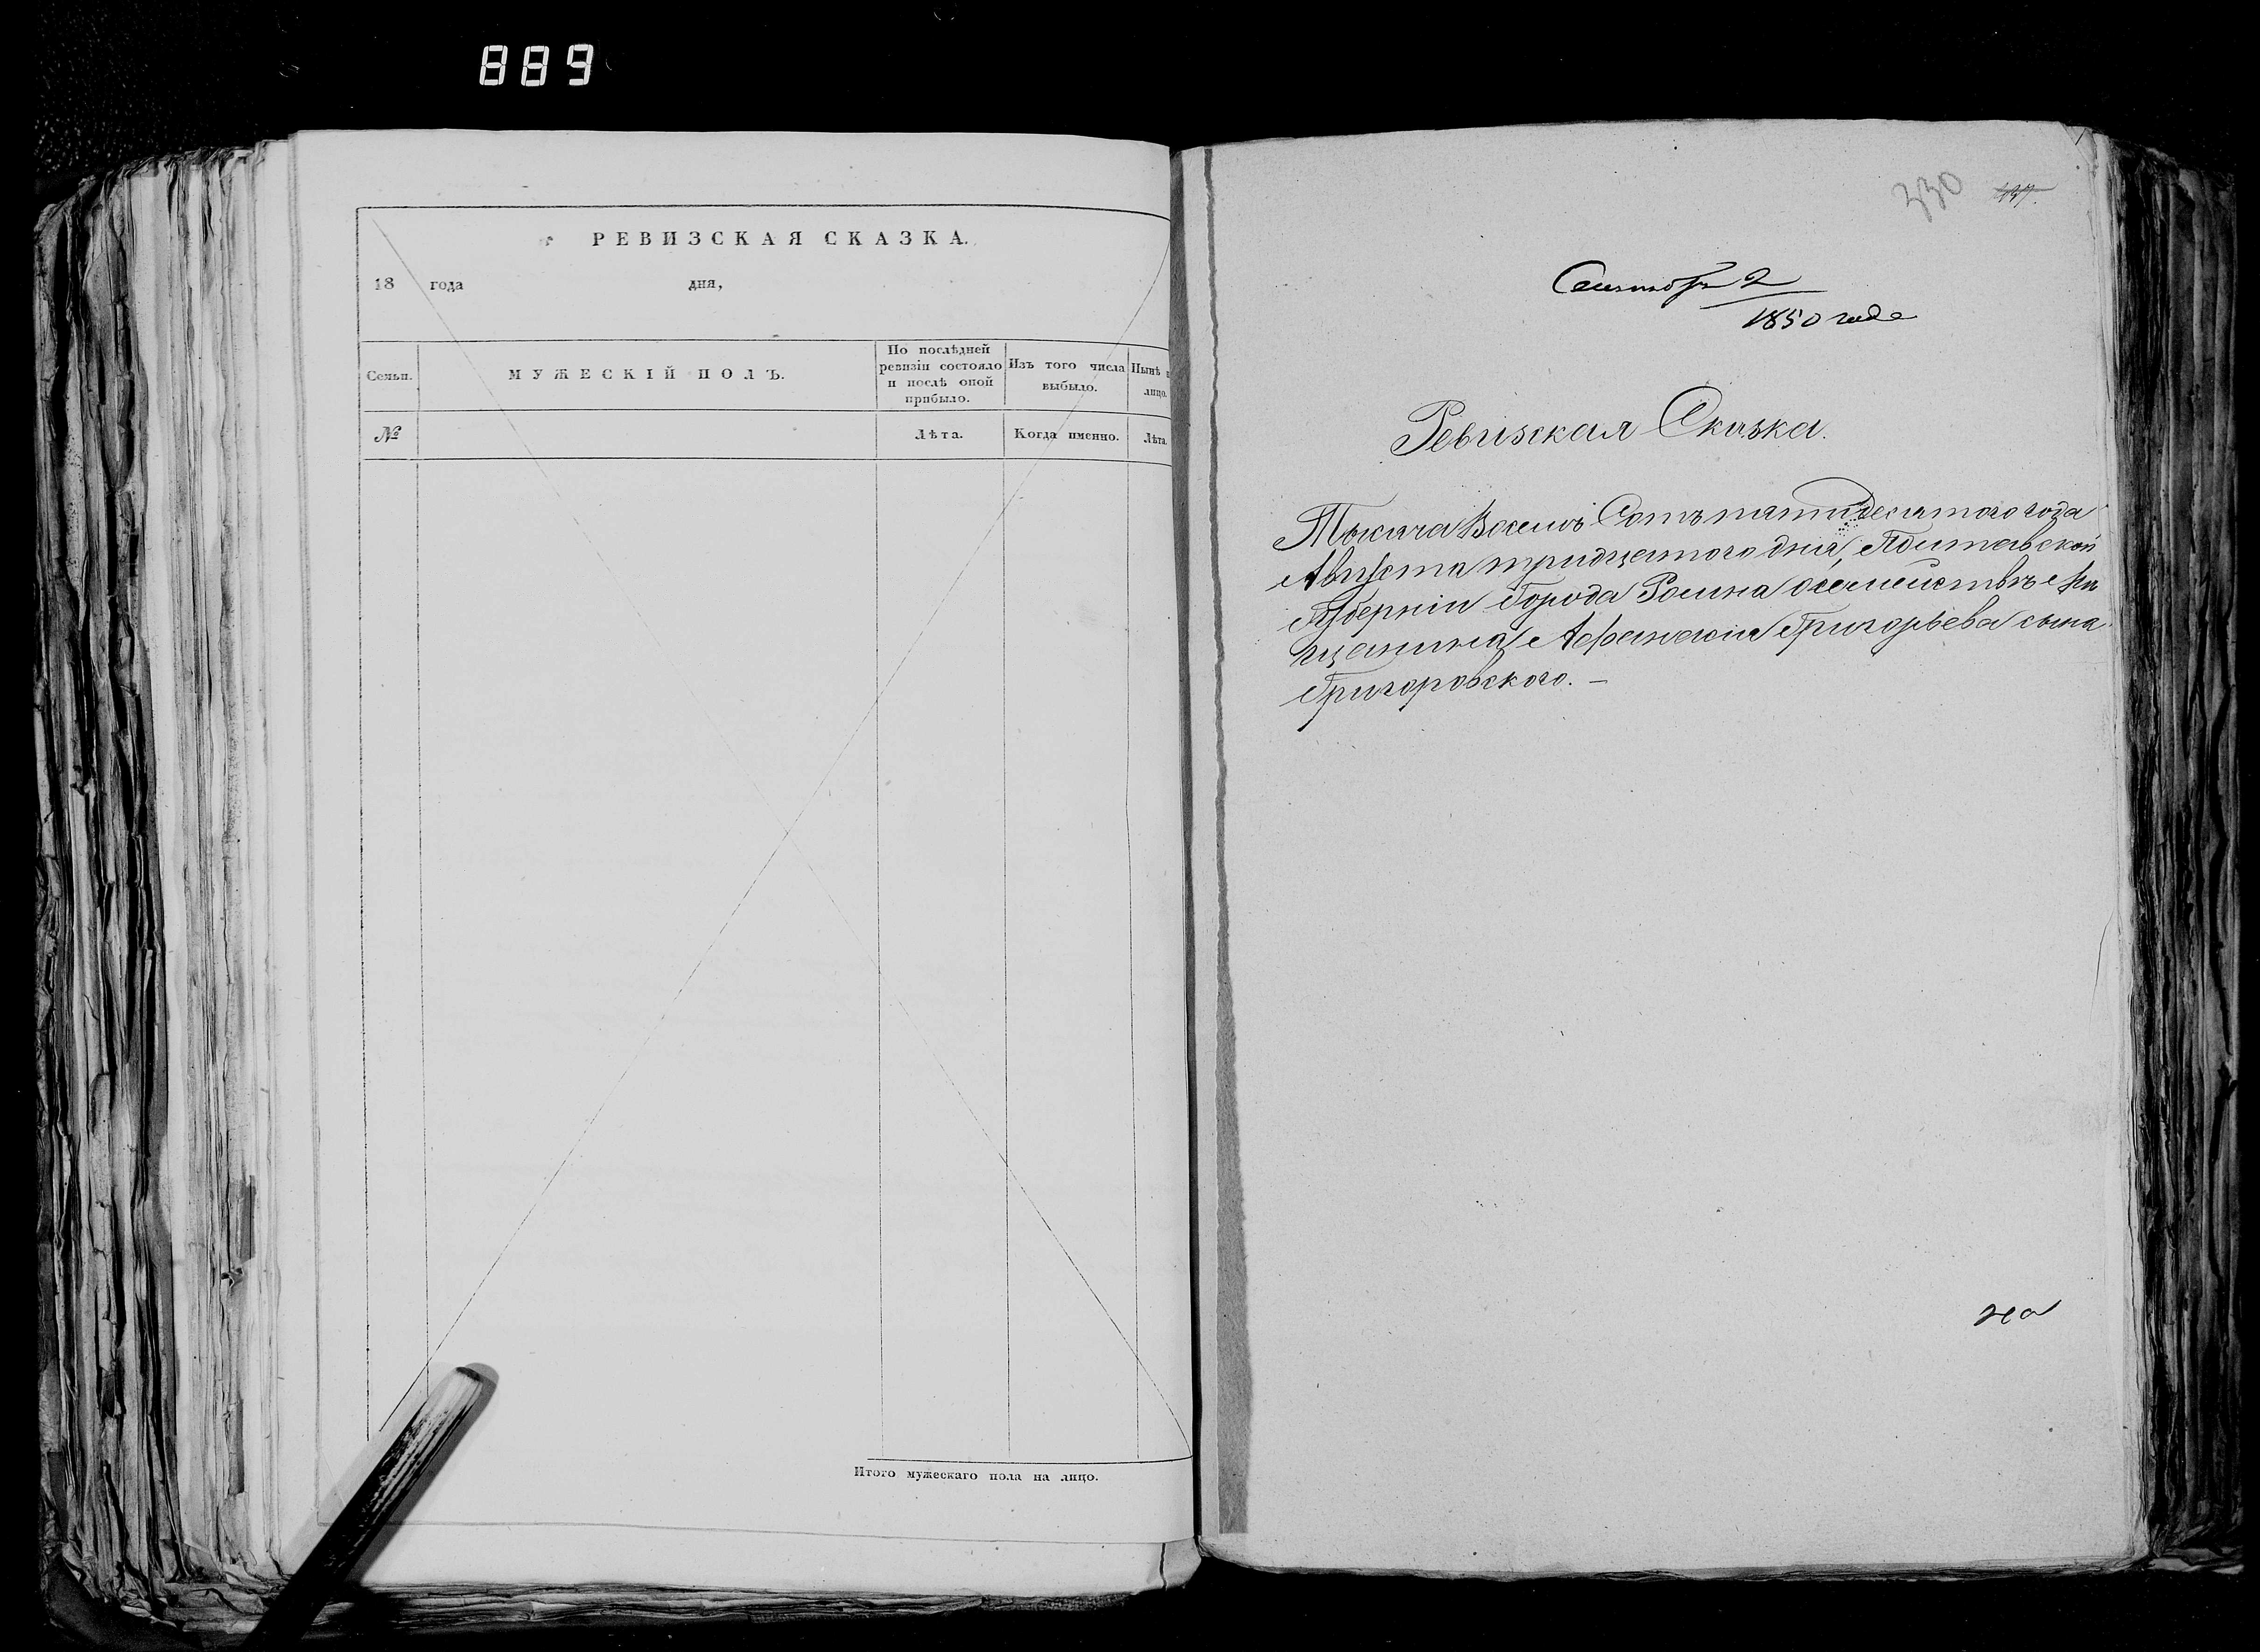 889
РЕВИЗСКАЯ СКАЗКА.
18 года дня,
Семьи.
МУЖЕСКІЙ ПОЛЪ.
По послѣдней
ревизіи состояло
и послѣ оной
прибыло.
Изъ того числа
выбыло.
Нынѣ н
лицо.
№
Лѣта.
Когда именно.
Лѣта
Итого мужескаго пола на лицо.
330
Сентября 2
1850 года
Ревизская Сказка.
Тысяча Восемь Сотъ пятидесятого года
Августа тридцатого дня, Полтавской
Губерніи Города Ромна о семействѣ Мѣ
щанина Афанасия Григорьева сына
Григоровского. —
на